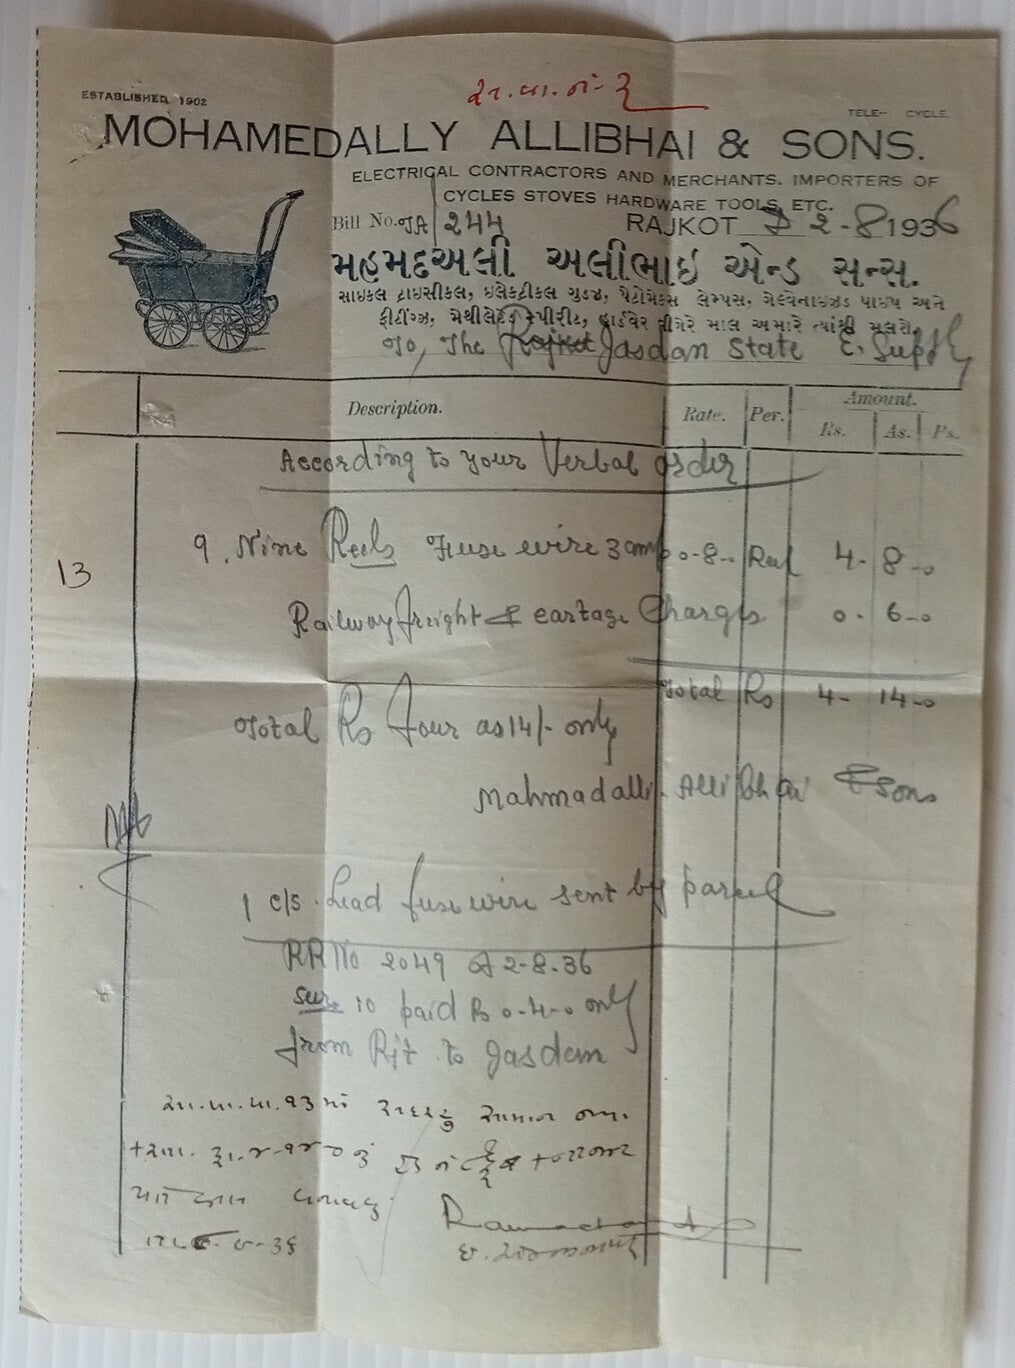 ESTABLISHED 1902
TELE- CYCLE.
MOHAMEDALLY ALLIBHAI & SONS.
ELECTRICAL CONTRACTORS AND MERCHANTS. IMPORTERS OF
CYCLES STOVES HARDWARE TOOLS, ETC.
Bill No. JA/244 RAJKOT D 2-8 1936
મહમદઅલી અલીભાઇ એન્ડ સન્સ.
સાઇકલ ટ્રાઇસીકલ, ઇલેક્ટ્રીકલ ગુડઝ, પેટ્રોમેક્સ લેમ્પસ, ગેલ્વેનાઇઝ્ડ પાઇપ અને
ફીટીંગ્ઝ, મેથીલેટેડ સ્પીરીટ, હાર્ડવેર વીગેરે માલ અમારે ત્યાંથી મલશે.
To, The Jasdan State E. Supply
Description. Rate. Per. Amount.
Rs. As. Ps.
According to your Verbal order
9. Nine Reels Fuse wire 3 amp 0-8- Reel 4-8-0
13
Railway freight & cartage Charges 0-6-0
Total Rs 4-14-0
Total Rs Four as 14/- only
Mahmadalli Allibhai & Sons
1 c/s Lead fuse wire sent by parcel
RR No 2049 of 2-8-36
paid Rs 0-4-0 only
from Rjt to Jasdan